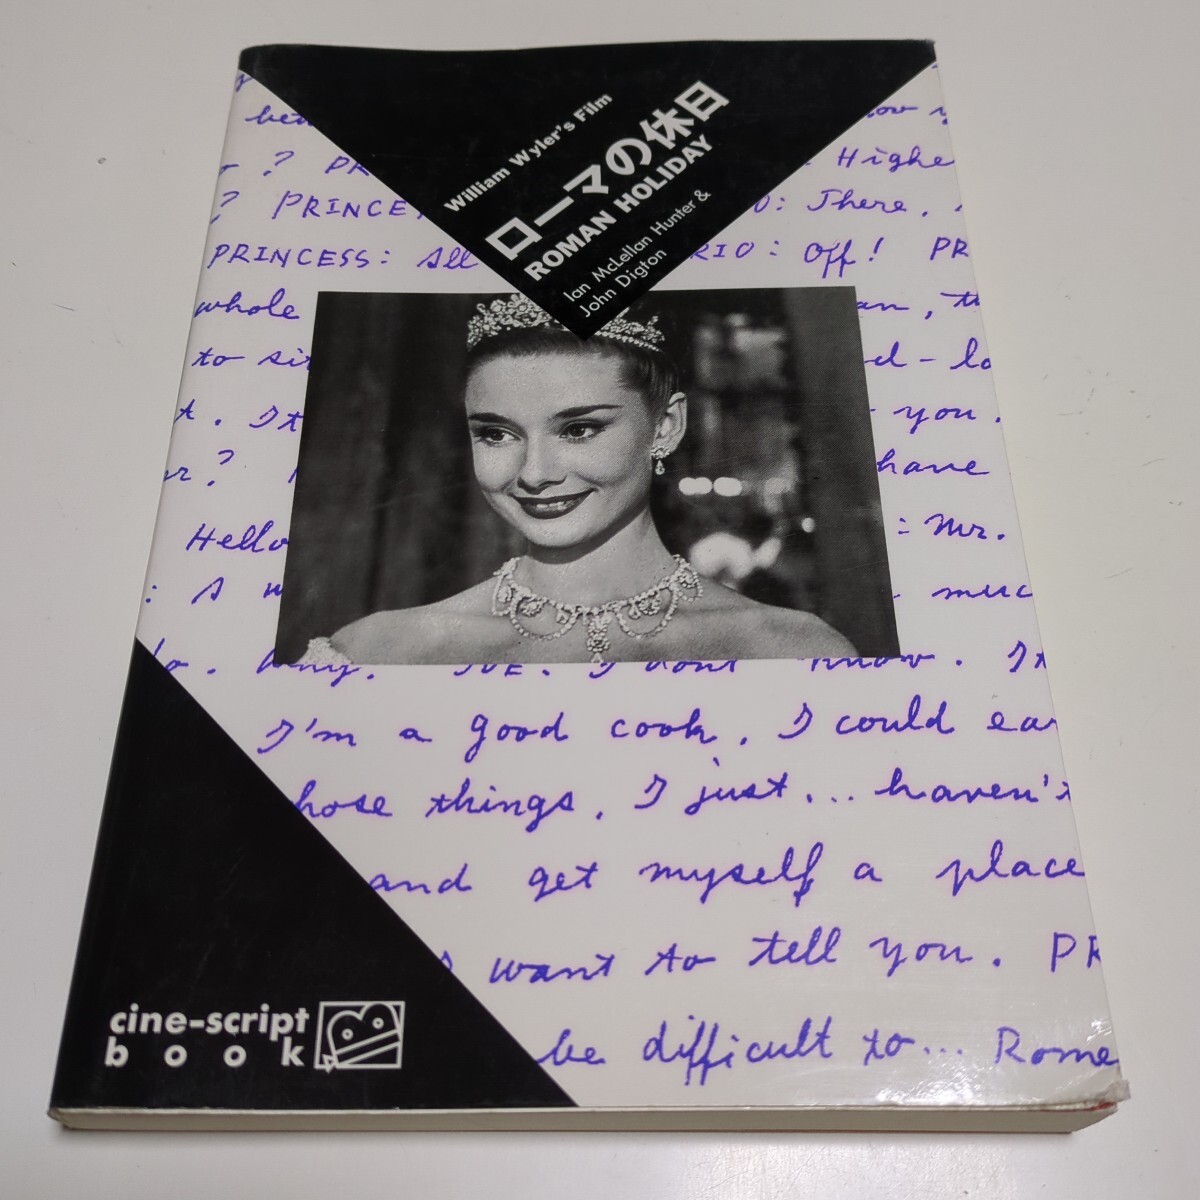 William Wyler's Film
ローマの休日
ROMAN HOLIDAY
Ian McLellan Hunter &
John Digton
? PR Highe
? PRINCE O: There,
PRINCESS: All RIO: Off! PR
whole an, th
to si d-lo
t. It you.
? have
Hello : Mr.
: A w muc
. Why. JOE. I don't know. It
I'm a good cook, I could ea
hose things, I just... haven't
and get myself a place
want to tell you. PR
be difficult to... Rome
cine-script
book